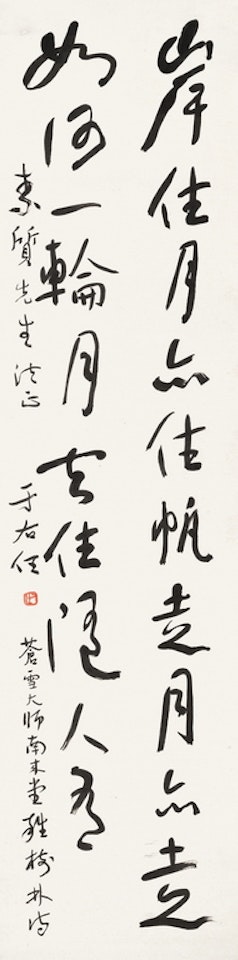 岸住月亦住帆走月亦走
如何一輪月去住隨人有
素質先生法正
于右任
蒼雪大師南來堂詩